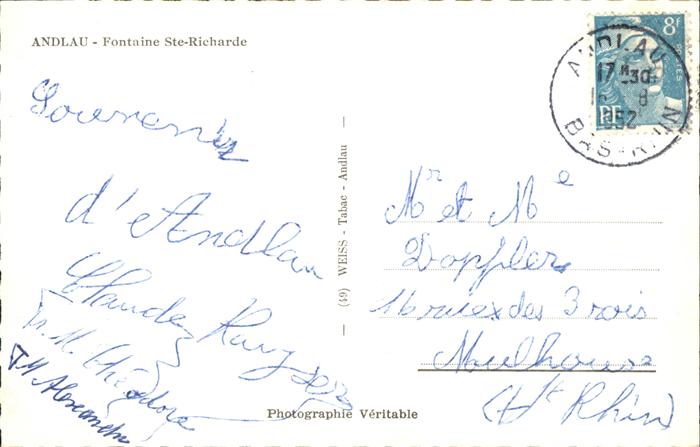 ANDLAU - Fontaine Ste-Richarde
Souvenirs
d'Andlau
Claude
M. Théodore
M Alexandre
(49) WEISS - Tabac - Andlau
Photographie Véritable
8f
POSTES
RF
ANDLAU
17H30
8
952
BAS-RHIN
Mr et Me
Dopfler
16 rue des 3 rois
Mulhouse
(Ht Rhin)